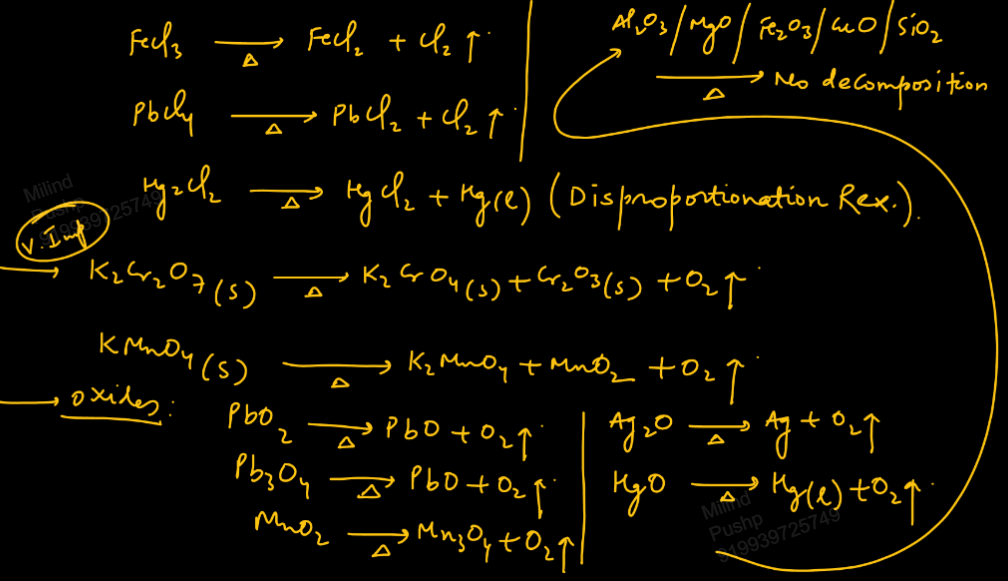 FeCl3 →Δ FeCl2 + Cl2↑
PbCl4 →Δ PbCl2 + Cl2↑
Al2O3/MgO/Fe2O3/CuO/SiO2
→Δ No decomposition
Hg2Cl2 →Δ HgCl2 + Hg(l) (Disproportionation Rex.).
V. Imp
→ K2Cr2O7(s) →Δ K2CrO4(s) + Cr2O3(s) + O2↑
KMnO4(s) →Δ K2MnO4 + MnO2 + O2↑
→ oxides:
PbO2 →Δ PbO + O2↑
Pb3O4 →Δ PbO + O2↑
MnO2 →Δ Mn3O4 + O2↑
Ag2O →Δ Ag + O2↑
HgO →Δ Hg(l) + O2↑
Milind
Pushp
919939725749
Milind
Pushp
919939725749